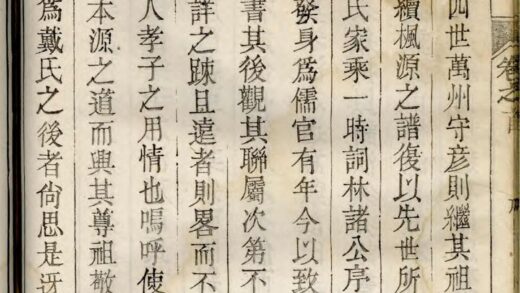 卷之首
四世萬州守彦則繼其祖
續楓源之譜復以先世所
氏家乘一時詞林諸公序
發身爲儒官有年今以致
書其後觀其聯屬次第不
詳之踈且遠者則畧而不
人孝子之用情也嗚呼使
本源之道而興其尊祖敬
爲戴氏之後者尙思是讶